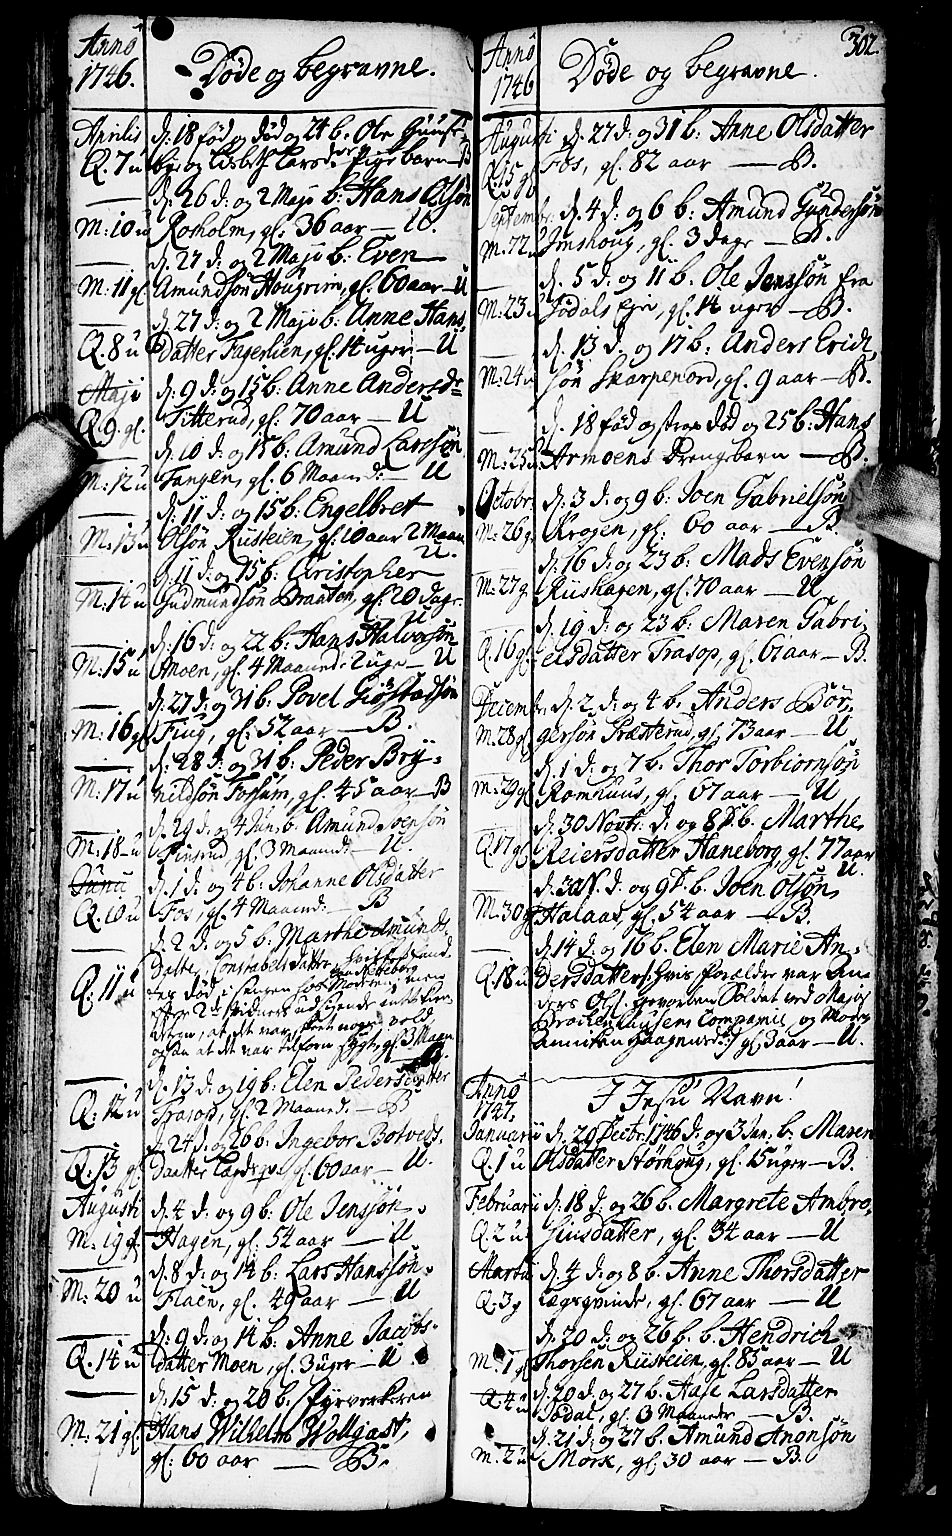 Anno
1746.
Døde og begravne.
Aprilis d. 18 fød og død og 24 b: Ole
Q. 7 u og Lisbeth Larsd: Pige barn B
d. 26 d: og 2 Maji b: Hans Olsøn
M: 10 u Roeholm, gl. 36 aar — U.
d. 27 d: og 2 Maji b: Even
M: 11 gl. Amundsøn Hougrim, gl. 60 aar — U
d: 27 d: og 2 Maji b: Anne Hans
Q. 8 u datter Fagerlien, gl. 14 uger — U
Maji d: 9 d: og 15 b: Anne Andersd
Q. 9 gl. Titterud, gl. 70 aar — U
d. 10 d: og 15 b: Amund Larssøn
M: 12 u Tangen, gl. 6 Maaned: — U
d: 11 d: og 15 b: Engelbret
M: 13 u Olsøn Rusteien, gl. 10 aar 2 Maan
U.
d: 11 d: og 15 b: Christopher
M: 14 u Gudmundsøn Braaten, gl. 20 dage
U
d. 16 d: og 22 b: Hans Halvorsøn
M: 15 u Moen, gl. 4 Maaned: 2 uge — U
d: 27 d: og 31 b: Povel Giøstadsøn
M: 16 gl Fiug, gl: 52 aar — B.
d: 28 d: og 31 b: Peder Bry-
M: 17 u nildsøn Fossum, gl. 45 aar — B
d: 29 d: og 4 Jun: b: Amund Evensøn
M: 18 u gl. 3 Maaned: — U.
Junii d. 1 d: og 4 b: Johanne Olsdatter
Q. 10 u Fos, gl. 4 Maaned: B
d. 2 d: og 5 b: Marthe Amunds
Q: 11 u Datter, Constabels datter,
død i Sengen hos Moderen, men
efter 2de Vidners
at det var skeet nogen vold,
ogsaa at det var tilforn sygt, gl. 3 Maan
B.
d. 13 d: og 19 b: Elen Pedersdatter
Q: 12 u Trasop, gl. 2 Maaned. — B
d. 24 d: og 26 b: Ingebor Botveds
Q. 13 gl. Daatter gl. 60 aar — U.
Augusti d. 4 d: og 9 b: Ole Jenssøn
M: 19 gl. Hagen, gl: 54 aar — U
d. 8 d: og 14 b: Lars Hanssøn
M: 20 u Flaen, gl. 49 aar — U
d: 9 d: og 14 b: Anne Jacobs-
Q. 14 u datter Moen, gl. 3 uger — U
d: 15 d: og 20 b: Fyrverkeren
M: 21 gl. Hans Wilhelm Wollgast,
gl: 60 aar — B.
Anno
1746
Døde og begravne.
302.
Augusti d. 27 d: og 31 b: Anne Olsdatter
Q: 15 gl Fos, gl. 82 aar — B.
Septembr: d. 4 d: og 6 b: Amund Gundersøn
M: 22 u Imshoug, gl. 3 dage — B.
d. 5 d: og 11 b. Ole Jenssøn fra
M: 23 u Sodals Eje, gl. 14 uger — B.
d. 13 d. og 17 b: Anders Erich
M: 24 u søn Skarpenord, gl. 9 aar — B.
d. 18 fød og strax død og 25 b: Hans
M: 25 Armoens Drengebarn — B.
Octobr: d: 3 d: og 9 b: Joen Gabrielsøn
M: 26 g. Krogen, gl: 60 aar — B
d. 16 d: og 23 b: Mads Evensøn
M: 27 g. Riishagen, gl. 70 aar — U
d. 19 d: og 23 b: Maren Gabri-
Q. 16 gl elsdatter Trasop, gl. 61 aar — B.
Decembr. d. 2 d: og 4 b. Anders Bør-
M: 28 gl gersøn Præsterud, gl. 73 aar — U
d. 1 d: og 7 b: Thor Torbiørnsøn
M: 29 gl Romhuus, gl. 67 aar — U
d. 30 Novbr. d: og 8 b. Marthe
Q. 17 gl Reiersdatter Haneborg, gl. 77 aar
U.
d. 30 N. d: og 9 b. Joen Olsøn
M: 30 g Halaas, gl. 54 aar — B.
d. 14 d: og 16 b. Elen Marie An-
Q. 18 u dersdatter /: hvis Forældre var An-
ders Ols: gevorben Soldat ved Major
Brockenhuusens Compagnie og Moder
Anniken Haagensd: :/ gl. 3 aar — U.
Anno
1747.
I Jesu Navn!
Januarii d. 29 Decbr: 1746 d: og 3 Jan. b: Maren
Q. 1 u Olsdatter Hørhoug, gl. 15 uger — B.
Februarii d. 18 d: og 26 b. Margrete Ambro-
Q. 2 u siusdatter, gl. 34 aar — U
Martii d. 4 d: og 8 b: Anne Thorsdatter
Q: 3 g Lægsqvinde, gl. 67 aar — U
d: 20 d: og 26 b. b. Hendrich
M: 1 gl Thorsen Rusteien, gl. 85 aar — U
Q. 4 u d. 20 d: og 27 b. Aase Larsdatter
Sodal, gl. 3 Maaneder — B.
d. 21 d: og 27 b: Amund Aronsøn
M: 2 u Mork, gl. 30 aar — B.